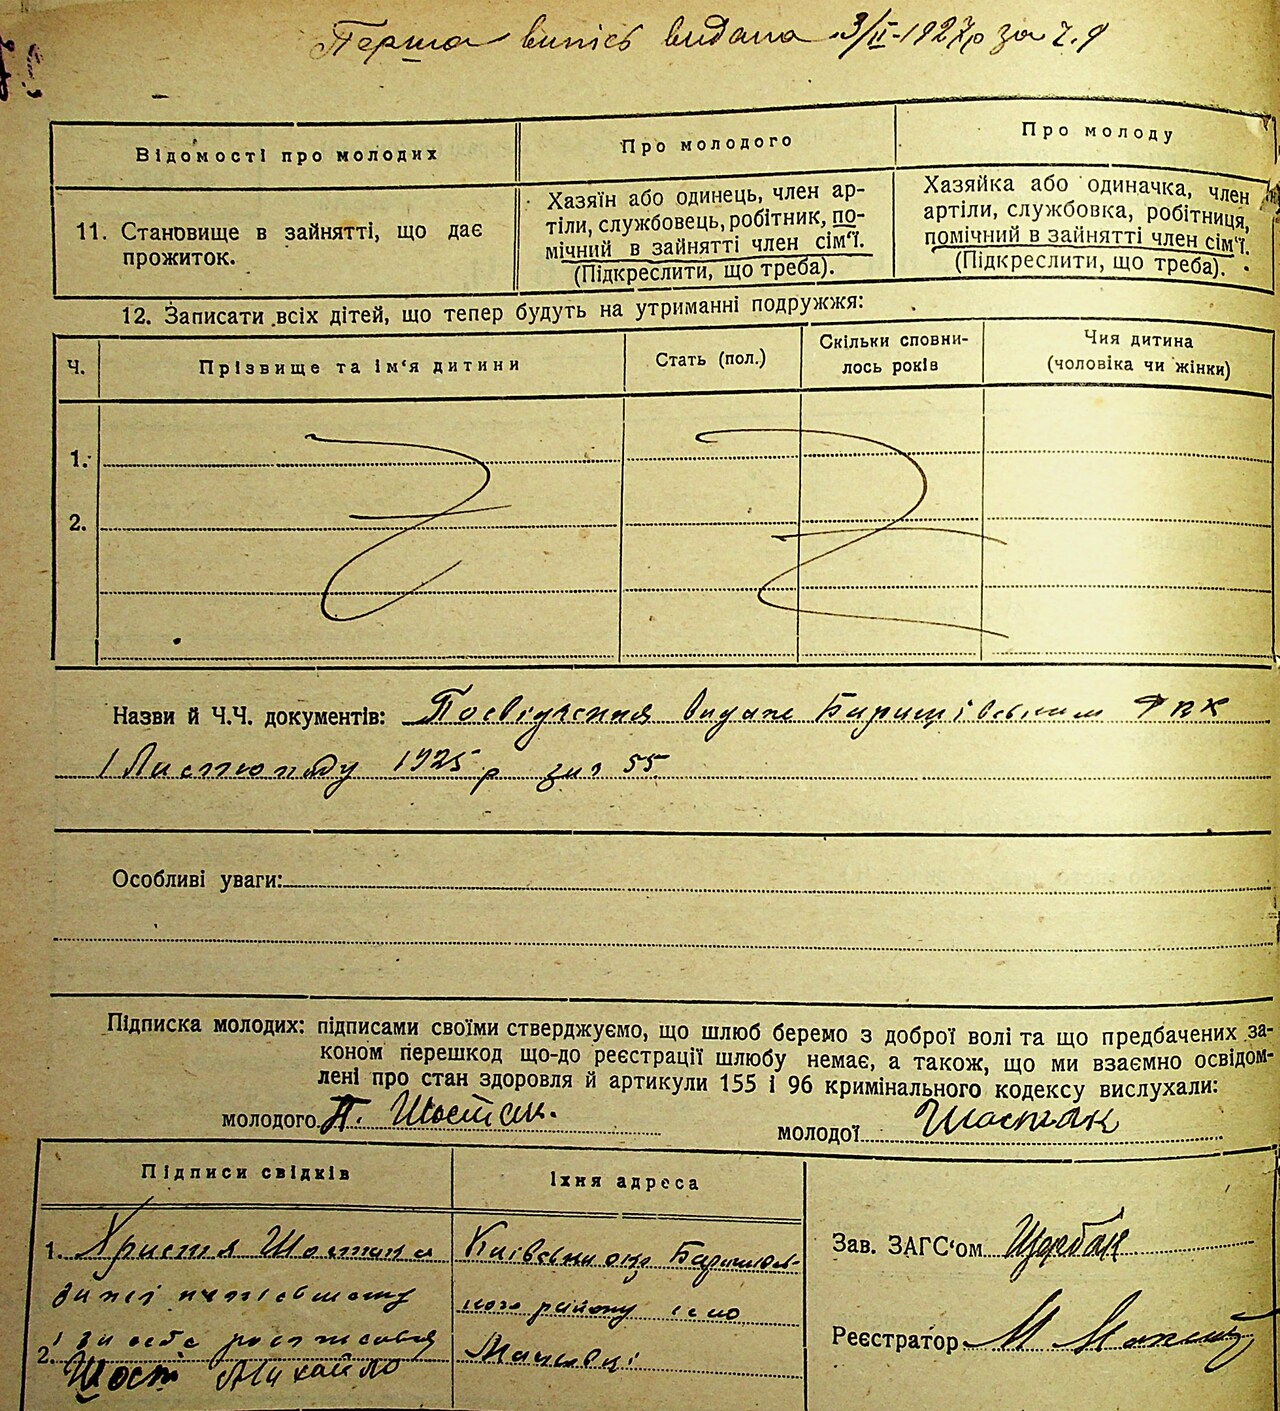 Перша випись видана 3/II-1927р за ч. 9
Відомості про молодих
Про молодого
Про молоду
11. Становище в зайнятті, що дає
прожиток.
Хазяїн або одинець, член ар-
тіли, службовець, робітник, по-
мічний в зайнятті член сім'ї.
(Підкреслити, що треба).
Хазяйка або одиначка, член
артіли, службовка, робітниця,
помічний в зайнятті член сім'ї.
(Підкреслити, що треба).
12. Записати всіх дітей, що тепер будуть на утриманні подружжя:
Ч.
Прізвище та ім'я дитини
Стать (пол.)
Скільки сповни-
лось років
Чия дитина
(чоловіка чи жінки)
1.
2.
Назви й Ч.Ч. документів: Посвідчення видане Баришівським РВК
1 Листопаду 1925 р за 55
Особливі уваги:
Підписка молодих: підписами своїми стверджуємо, що шлюб беремо з доброї волі та що предбачених за-
коном перешкод що-до реєстрації шлюбу немає, а також, що ми взаємно освідом-
лені про стан здоровля й артикули 155 і 96 кримінального кодексу вислухали:
молодого П. Шостак.
молодої Шостак
Підписи свідків
Їхня адреса
1. Христя Шостака
2. за себе росписався
Шост Михайло
Київськи окр Баришів-
ського району село
Зав. ЗАГС'ом
Реєстратор М